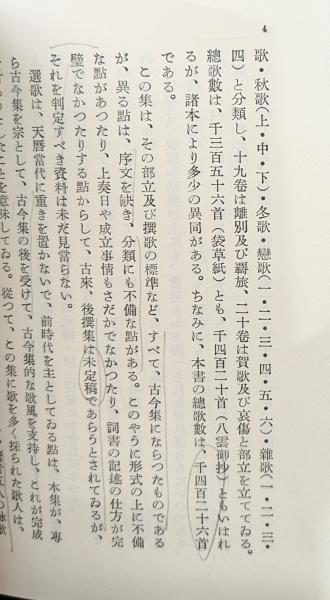 4
歌・秋歌(上・中・下)・冬歌・戀歌(一・二・三・四・五・六)・雜歌(一・二・三・
四)と分類し、十九卷は離別及び羇旅、二十卷は賀歌及び哀傷と部立を立ててゐる。
總歌數は、千三百五十六首(袋草紙)とも、千四百二十首(八雲御抄)ともいはれ
るが、諸本により多少の異同がある。ちなみに、本書の總歌數は、千四百二十六首
である。
この集は、その部立及び撰歌の標準など、すべて、古今集にならつたものである
が、異る點は、序文を缺き、分類にも不備な點がある。このやうに形式の上に不備
な點があつたり、上奏日や成立事情もさだかでなかつたり、詞書の記述の仕方が完
璧でなかつたりする點からして、古來、後撰集は未定稿であらうとされてゐるが、
それを判定すべき資料は未だ見當らない。
選歌は、天曆當代に重きを置かないで、前時代を主としてゐる點は、本集が、專
ら古今集を宗として、古今集の後を受けて、古今集的な歌風を支持し、これが完成
たことを意味してゐる。從つて、この集に歌を多く採られた歌人は、